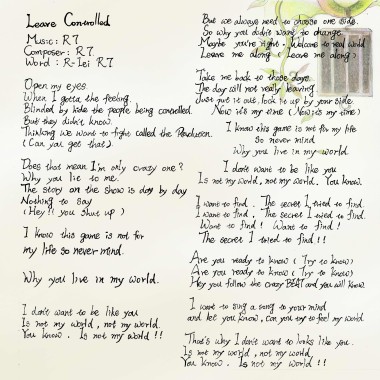 Leave Controlled
Music: R7
Composer: R7.
Word: R-Lei R7
Open my eyes.
When I gotta the feeling.
Blinded by hide the people being controlled.
But they didn't know.
Thinking we want to fight called the Revolution.
(Can you get that).
Does that mean I'm only crazy one?
Why you lie to me.
The story on the show is day by day
Nothing to say
(Hey!! you shut up)
I know this game is not for
my life so never mind.
Why you live in my world.
I don't want to be like you
Is not my world, not my world.
You know. Is not my world!!
But we always need to choose one side.
So why you didn't want to change.
Maybe you're right. Welcome to real world
Leave me along (Leave me along)
Take me back to those days.
The day will not really leaving.
Just put it out. lock it up by your side.
Now it's my time (Now it's my time)
I know this game is not for my life
So never mind
Why you live in my world.
I don't want to be like you
Is not my world, not my world. You know.
I want to find. The secret I tried to find.
I want to find. The secret I tried to find.
Want to find! Want to find!
The secret I tried to find!!
Are you ready to know (Try to know)
Are you ready to know (Try to know)
Hey you follow the crazy BEAT and you will know.
I want to sing a song to your mind
and let you know, can you try to feel my world.
That's why I don't want to looks like you.
Is not my world, not my world
You know. Is not my world!!